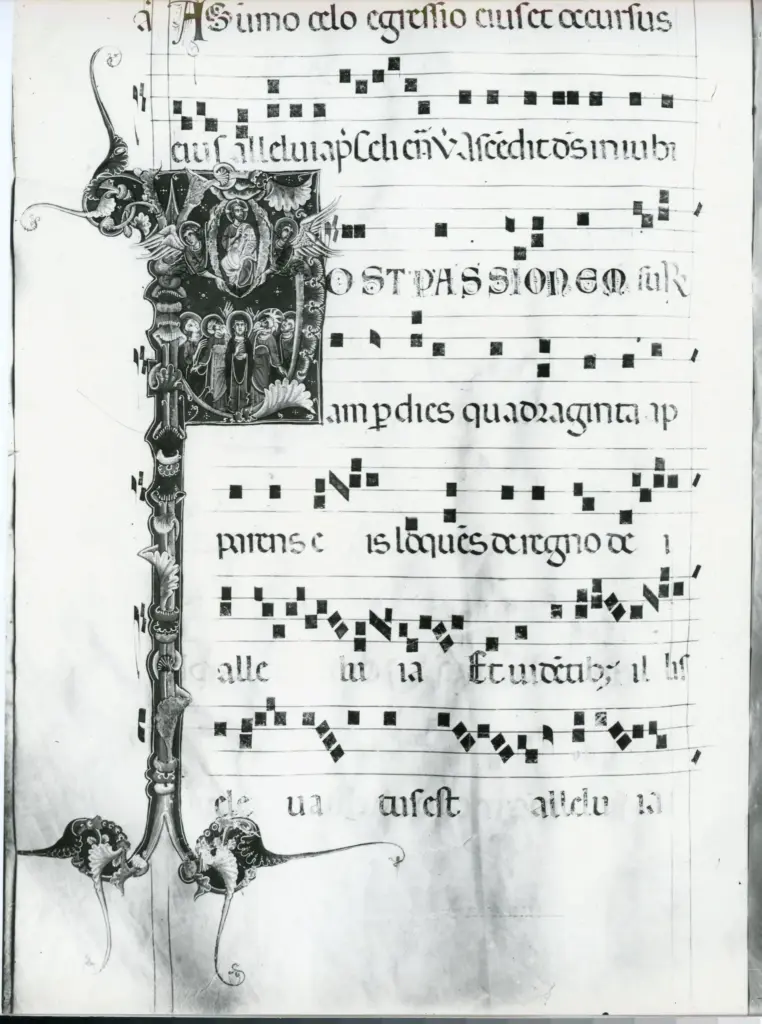 a A Sumo celo egressio eius et occursus
eius alleluia p̓s Celi en̄ V̓ Ascēdit dōs in iubi
POST PASSIONEM suR
am p dies quadraginta ap
parens e is loquēs de regno de i
alle lu ia Et uidētibꝫ il lis
ele ua tus est allelu ia